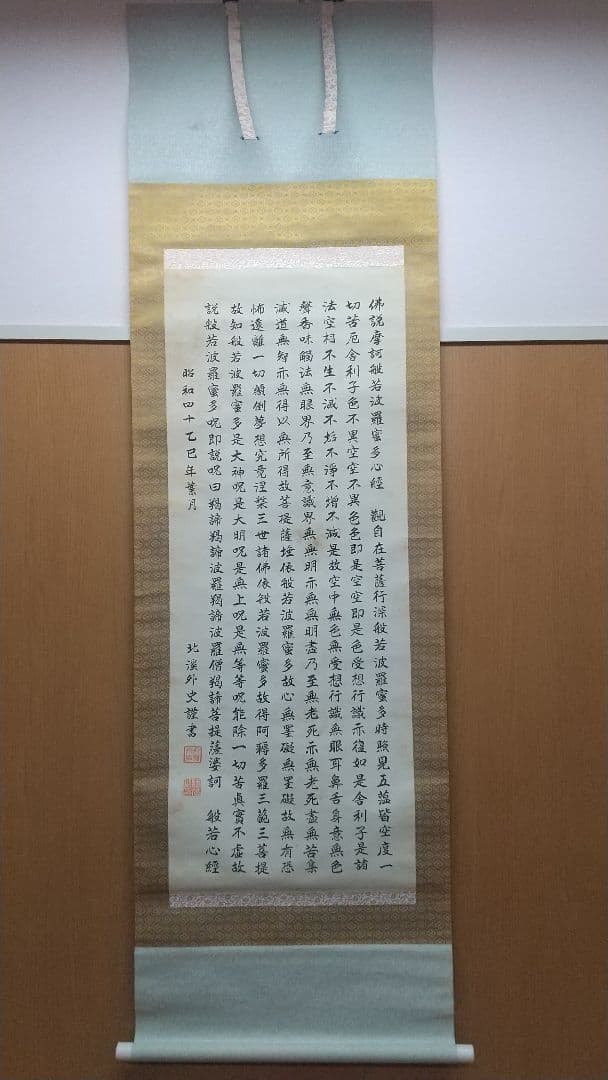 佛説摩訶般若波羅蜜多心經　觀自在菩薩行深般若波羅蜜多時照見五蘊皆空度一
切苦厄舎利子色不異空空不異色色即是空空即是色受想行識亦復如是舎利子是諸
法空相不生不滅不垢不淨不增不減是故空中無色無受想行識無眼耳鼻舌身意無色
聲香味觸法無眼界乃至無意識界無無明亦無無明盡乃至無老死亦無老死盡無苦集
滅道無智亦無得以無所得故菩提薩埵依般若波羅蜜多故心無罣礙無罣礙故無有恐
怖遠離一切顛倒夢想究竟涅槃三世諸佛依般若波羅蜜多故得阿耨多羅三藐三菩提
故知般若波羅蜜多是大神呪是大明呪是無上呪是無等等呪能除一切苦眞實不虚故
説般若波羅蜜多呪即説呪曰羯諦羯諦波羅羯諦波羅僧羯諦菩提薩婆訶　般若心經
昭和四十乙巳年葉月
北溪外史謹書